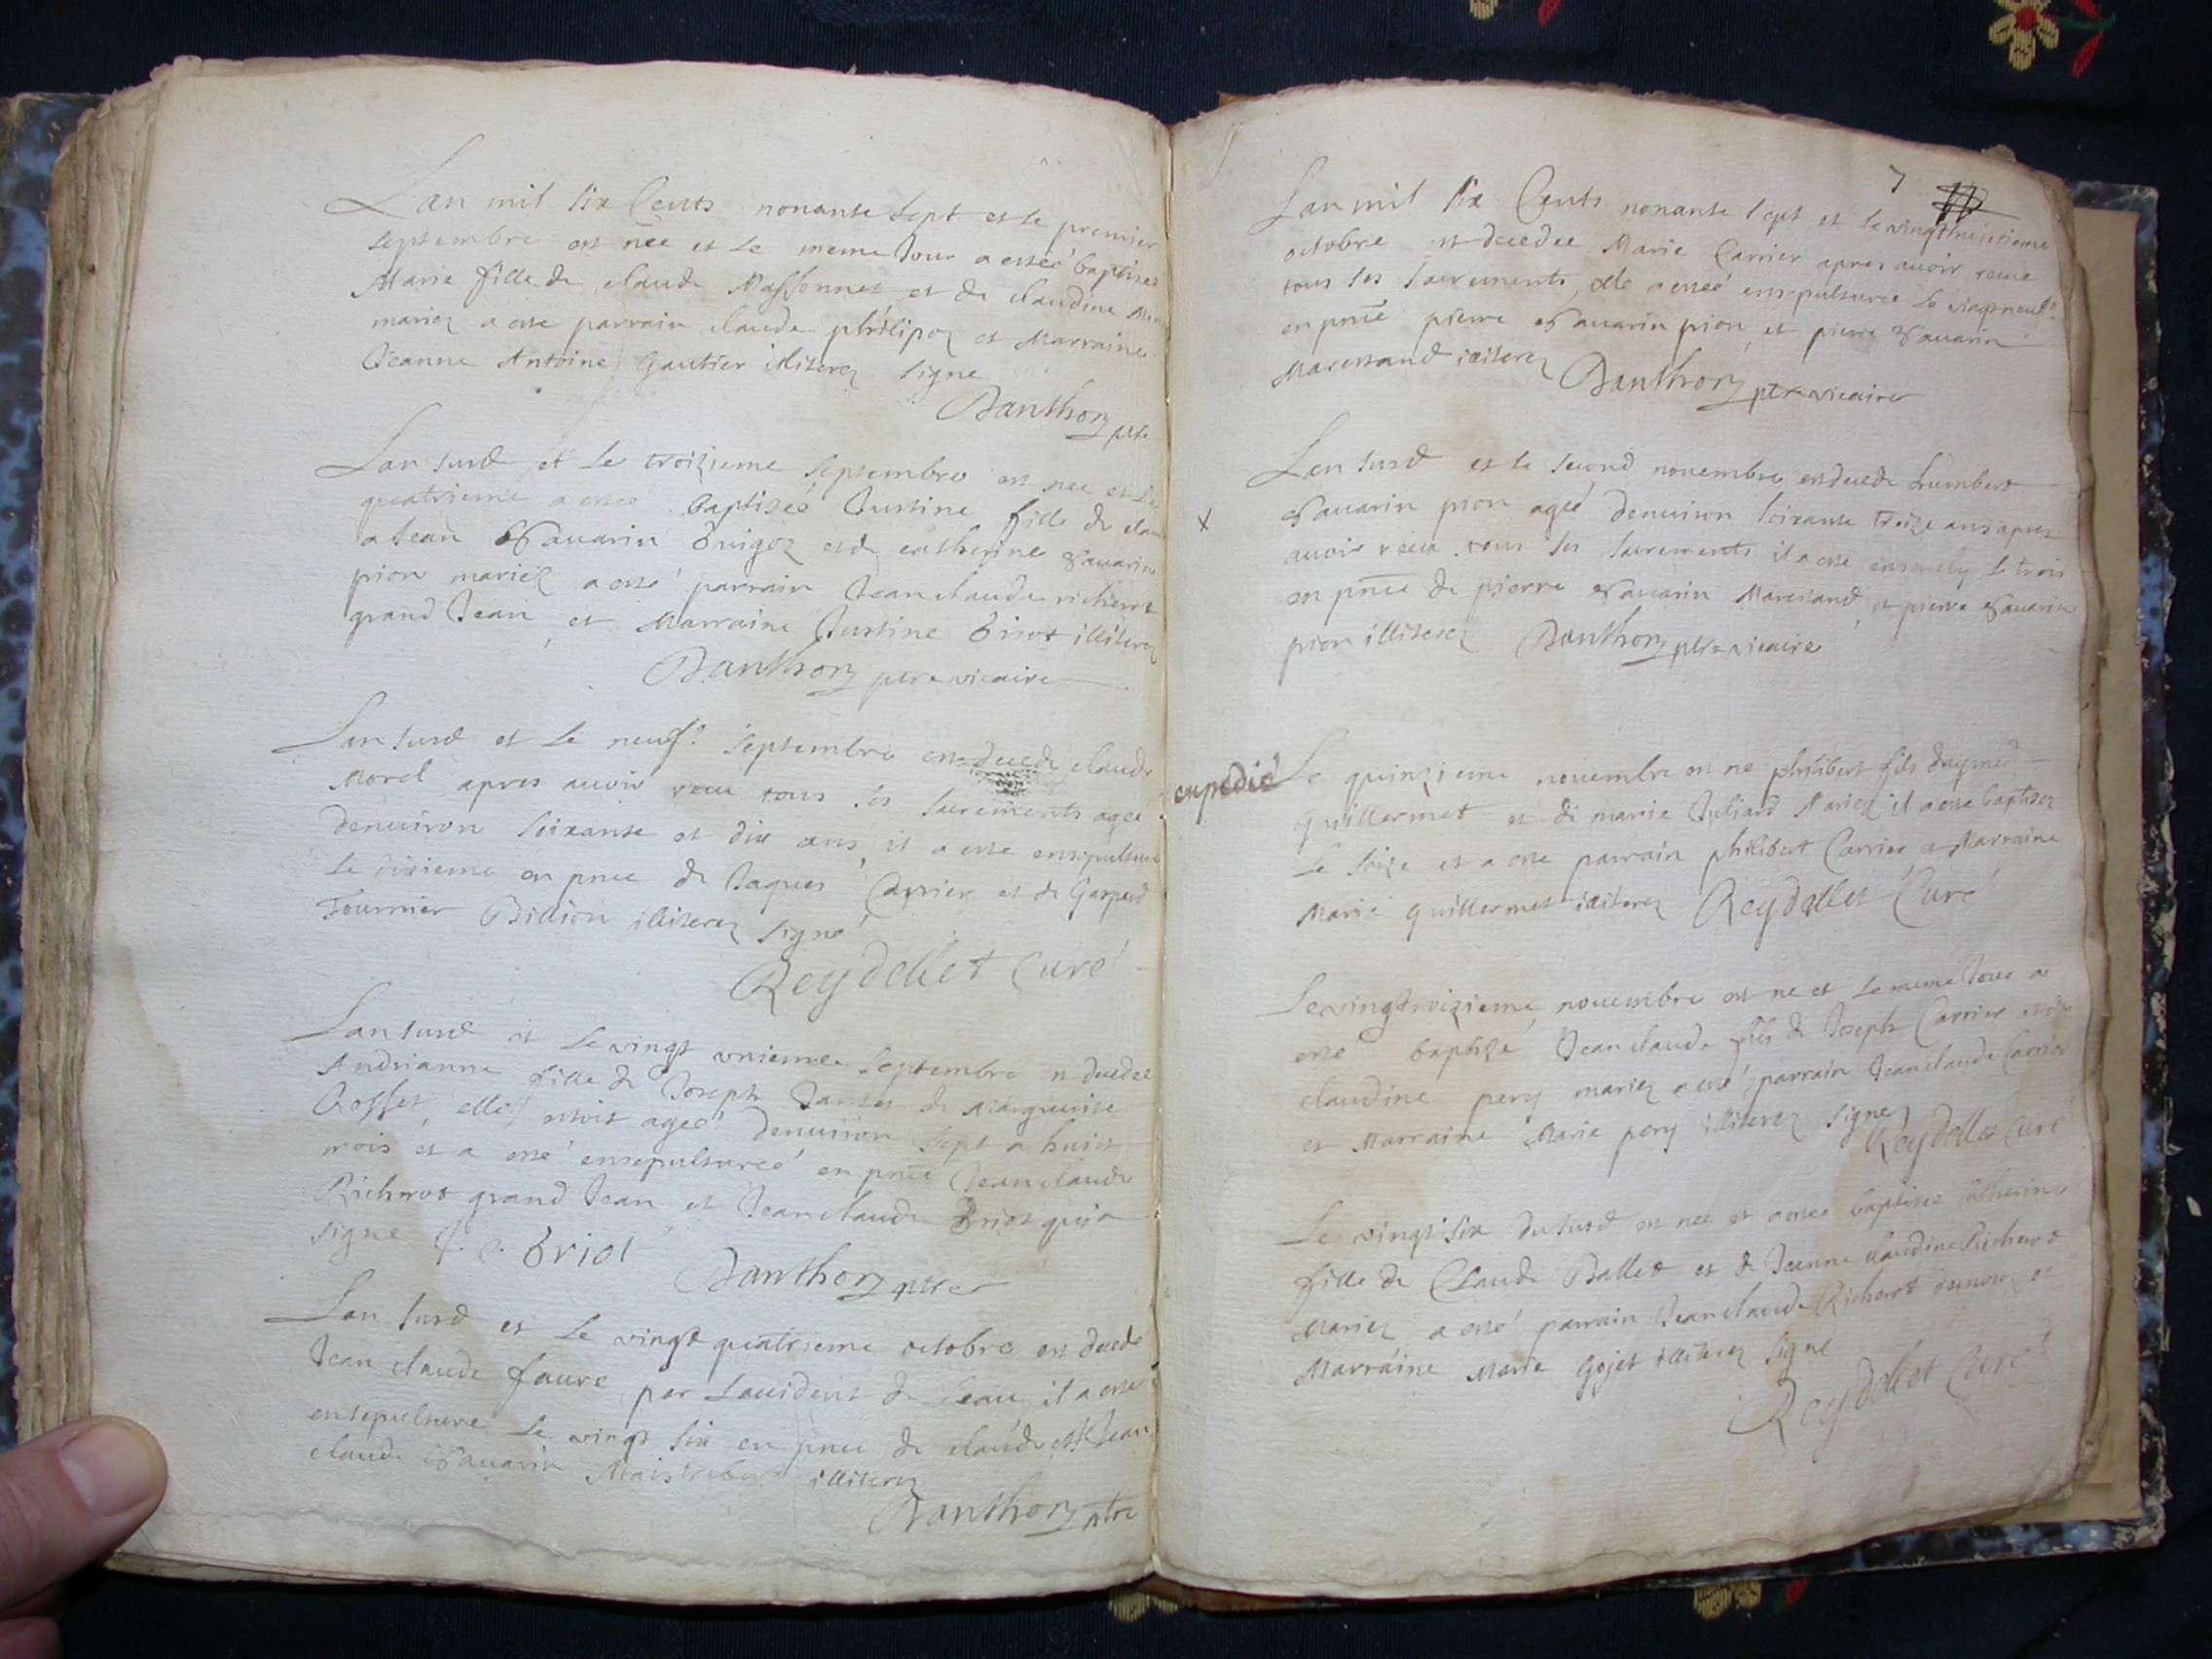 Lan mil six Cents nonante sept et le premier
septembre est née et le meme Jour a esteé baptisee
Marie fille de claude Massonnet et de claudine
mariez a este parrain claude philipoz et Marraine
Jeanne Antoine Gautier illiterez signe
Danthon ptre
Lan susd et le troizieme septembre est nee et le
quatrieme a esteé Baptiseé Justine fille de clau
a Jean Savarin et de catherine Savarin
pion mariez a esté parrain Jean claude richerot
grand Jean et Marraine Justine briot illiterez
Danthon ptre vicaire
Lan susd et le neuf.e septembre est decede claude
Morel apres avoir receu tous les sacrements ageé
denuiron soixante et dix ans, il a este ensepulturé
le dixieme en pnce de Jaques Carrier et de Gaspard
Fournier Billion illiterez signé
Reydellet Curé
Lan susd et le vingt unieme septembre decedee
Andrianne fille de Joseph et de Marguerite
Gosset, elle estoit ageé denuiron sept a huict
mois et a esté ensepultureé en pnce Jean claude
Richerot grand Jean et Jean claude Briot qui a
signe J. C. briot
Danthon ptre
Lan susd et le vingt quatrieme octobre est decedé
Jean claude faure par laccident de leau il a esté
ensepulturé le vingt six en pnce de claude et Jean
claude Savarin illiterez
Danthon ptre
7
Lan mil six Cents nonante sept et le vingthuictieme
octobre est decedee Marie Carrier apres avoir receu
tous les sacrements, elle a esteé ensepulturee le vingtneuf.e
en pnce pierre Savarin pion et pierre Savarin
Marchand illiterez Danthon ptre vicaire
Lan susd et le second novembre est decede humbert
x Savarin pion ageé denuiron soixante treize ans apres
avoir receu tous les sacrements il a este ensevely le trois
en pnce de pierre Savarin Marchand et pierre Savarin
pion illiterez Danthon ptre vicaire
expedié Le quinzieme novembre est ne philibert fils daymé
guillermet et de marie Juliard Mariez il a este baptisez
le seize et a este parrain philibert Carrier et Marraine
Marie guillermet illiterez Reydellet Curé
Le vingttroizieme novembre est ne et le meme Jour a
esté baptizé Jean claude fils de Joseph Carrier et de
claudine pery mariez a esté parrain Jean claude Carrier
et Marraine Marie pery illiterez signez
Reydellet Curé
Le vingt six du susd est neé et a esteé baptisee catherine
fille de Claude Ballet et de Jeanne claudine Richerot
Mariez a esté parrain Jean claude Richerot et
Marraine Marie Gojet illiterez signe
Reydellet Curé